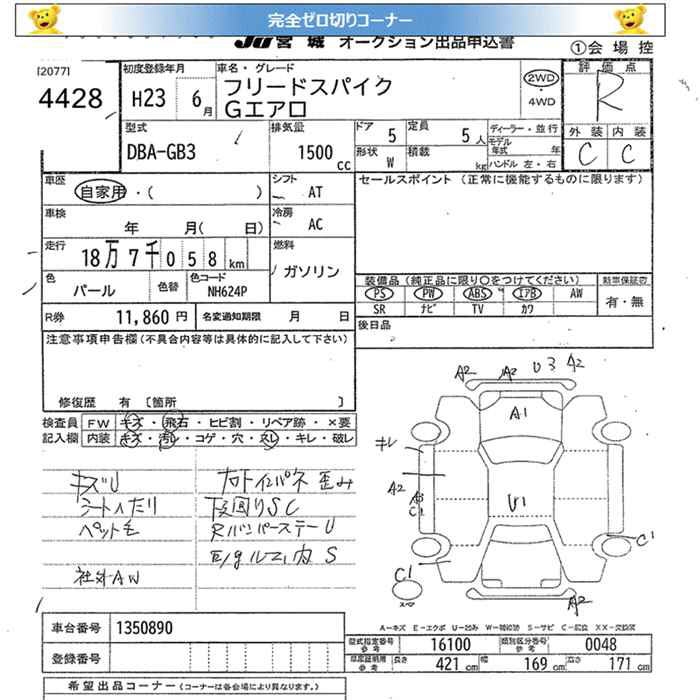 完全ゼロ切りコーナー
JU 宮城 オークション出品申込書
①会場控
[2077]
4428
初度登録年月
H23 6月
車名・グレード
フリードスパイク
Gエアロ
2WD
・
4WD
評価点
R
外装 内装
C C
型式
DBA-GB3
排気量
1500 cc
ドア 5
定員 5人
形状 W
積載 kg
ディーラー・並行
モデル年式 年
ハンドル 左・右
車歴
自家用・( )
シフト AT
車検
年 月( 日)
冷房 AC
走行
18万7千058km
燃料
ガソリン
色
パール
色替
色コード
NH624P
セールスポイント (正常に機能するものに限ります)
装備品 (純正品に限り○をつけてください)
PS PW ABS エアB AW
SR ナビ TV カワ
新車保証の
有・無
R券 11,860円
名変通知期限 月 日
後日品
注意事項申告欄(不具合内容等は具体的に記入して下さい)
修復歴 有 [箇所 ]
検査員
記入欄
FW キズ・飛石・ヒビ割・リペア跡・×要
内装 キズ・汚レ・コゲ・穴・スレ・キレ・破レ
キズU
シートへたり
ペット毛
社外AW
下回りSC
RバンパーステーU
E/gルーム内S
A2 A2 U3 A2
A1
キレ
A2
C1
U1
C1
C1
スペア
A2
A-キズ E-エクボ U-凹み W-補修跡 S-サビ C-腐食 XX-交換済
車台番号 1350890
登録番号
型式指定番号
参考
16100
類別区分番号
参考
0048
車庫証明用
参考
長さ 421 cm
幅 169 cm
高さ 171 cm
希望出品コーナー (コーナーは各会場により異なります。)